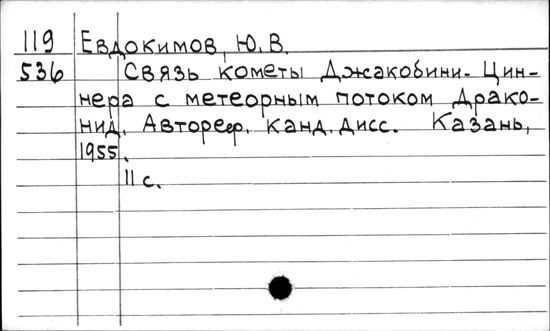 119 Евдокимов, Ю. В.
536 Связь кометы Джакобини-Цин-
нера с метеорным потоком Драко-
нид. Автореф. канд. дисс. Казань,
1955.
11 с.